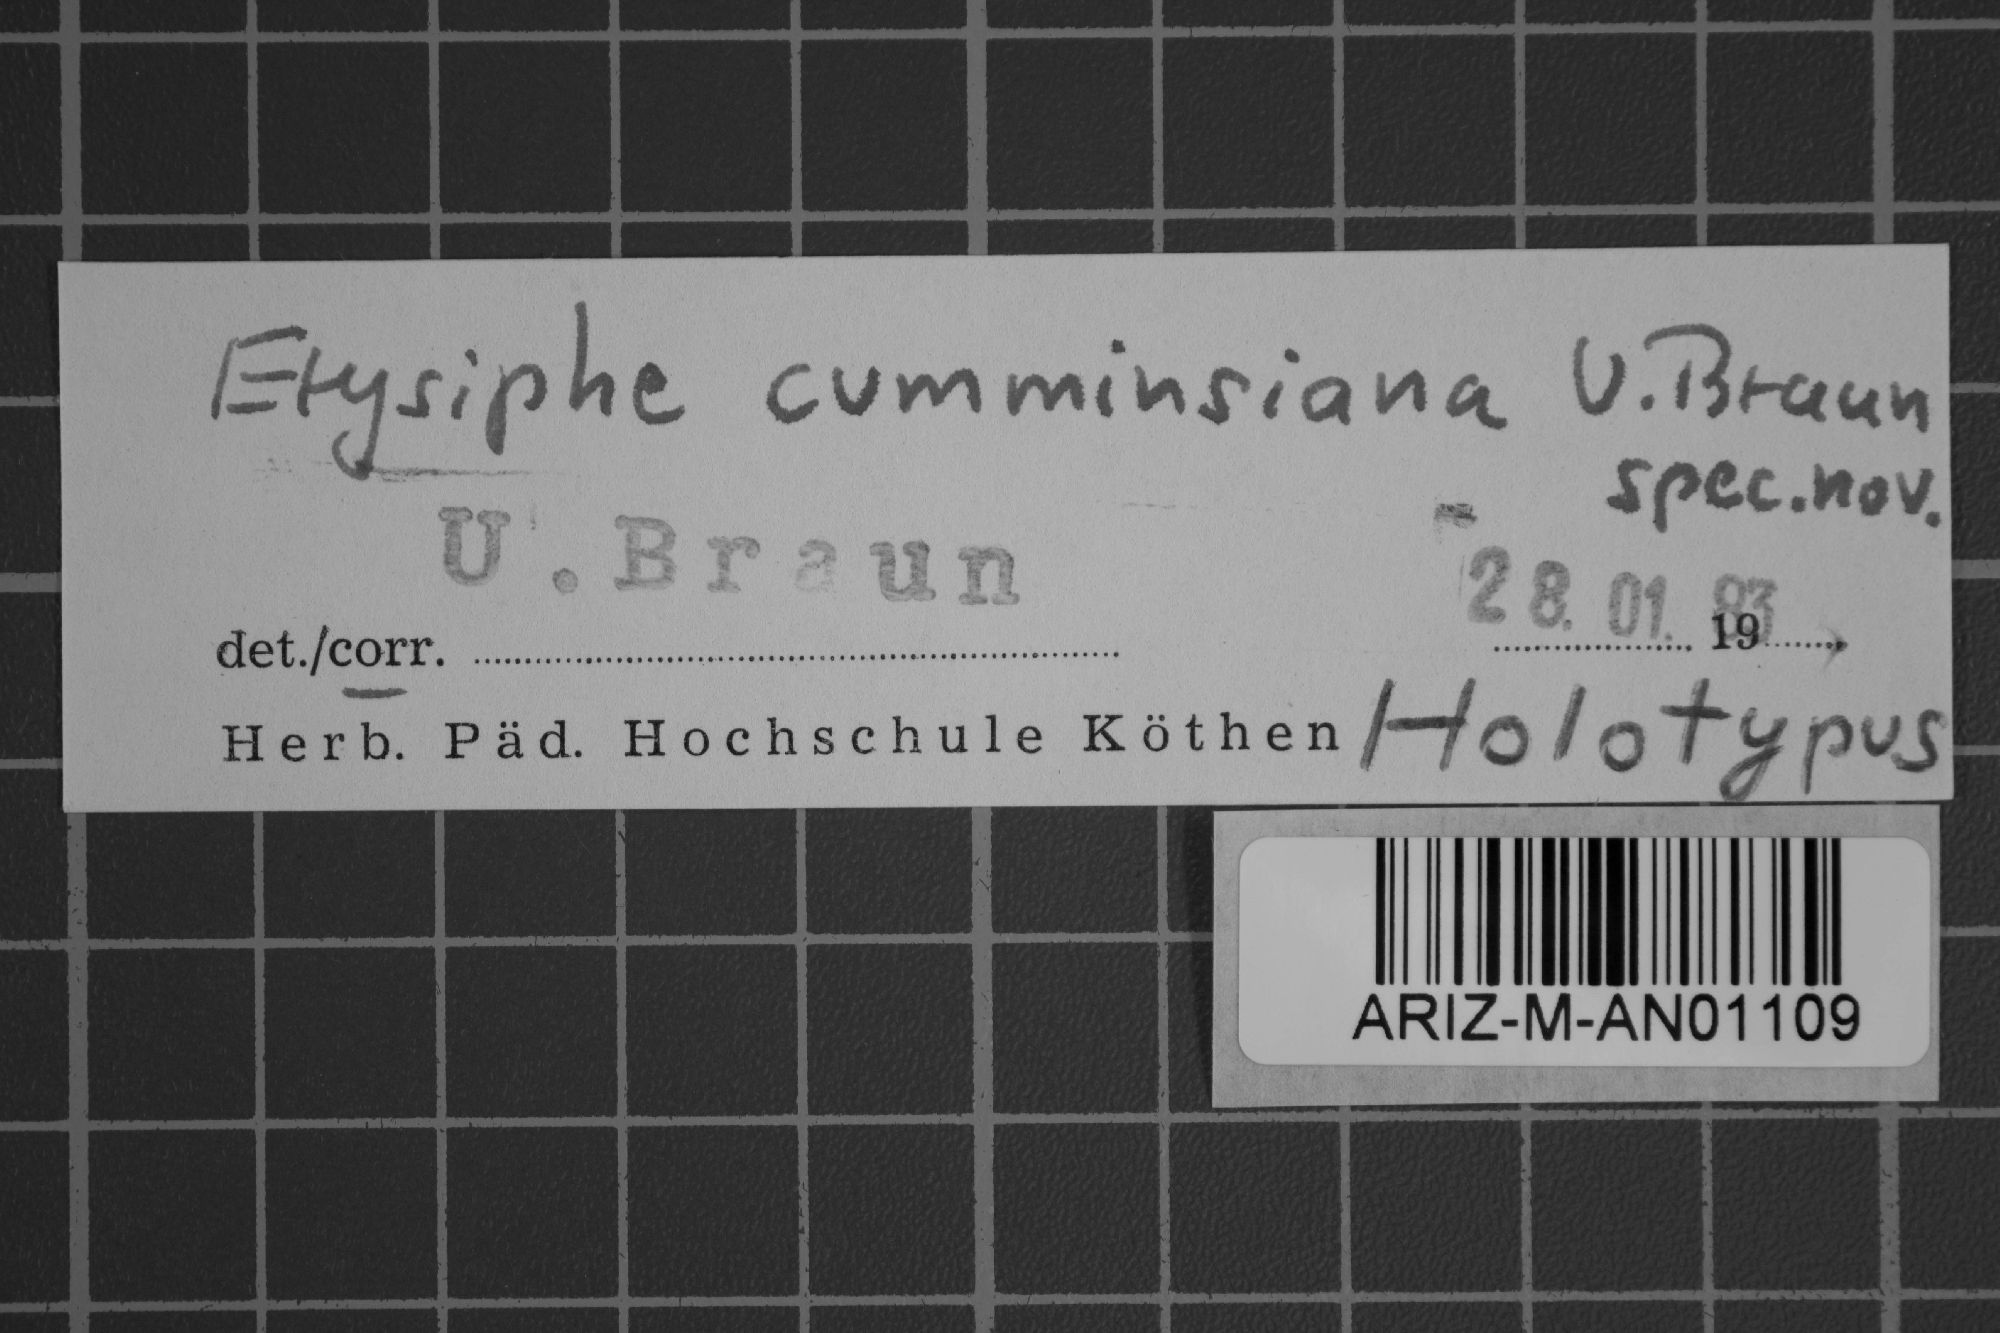 Erysiphe cumminsiana U. Braun
spec. nov.
U. Braun
28. 01. 83
det./corr. 19
Herb. Päd. Hochschule Köthen Holotypus
ARIZ-M-AN01109